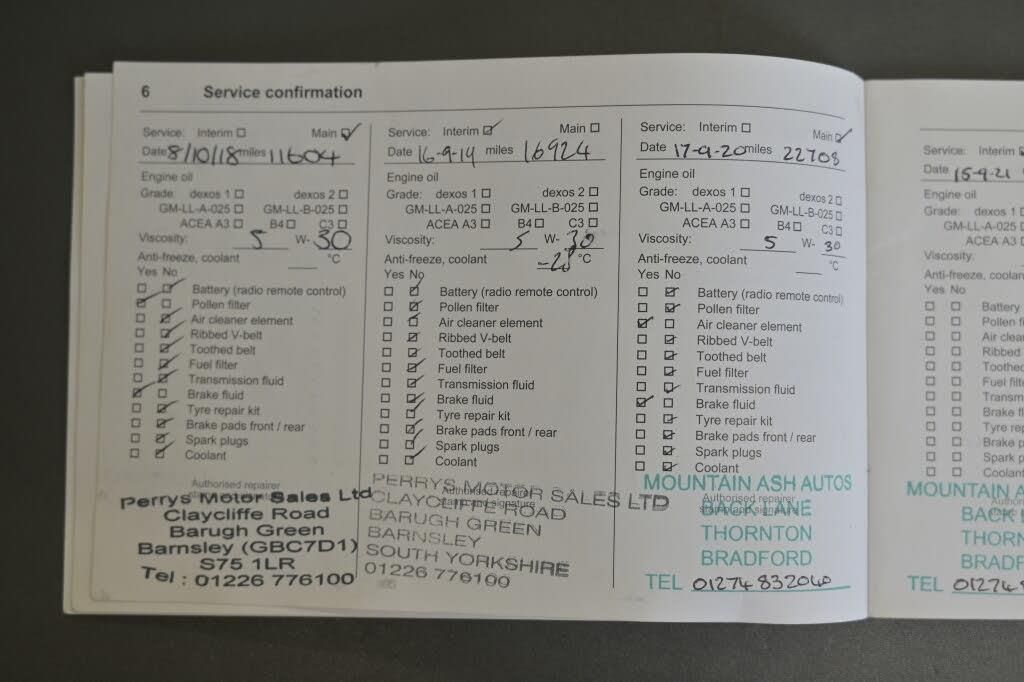 6 Service confirmation
Service: Interim Main
Date 8/10/18 miles 11604
Engine oil
Grade: dexos 1 dexos 2
GM-LL-A-025 GM-LL-B-025
ACEA A3 B4 C3
Viscosity: 5 W- 30
Anti-freeze, coolant °C
Yes No
Battery (radio remote control)
Pollen filter
Air cleaner element
Ribbed V-belt
Toothed belt
Fuel filter
Transmission fluid
Brake fluid
Tyre repair kit
Brake pads front / rear
Spark plugs
Coolant
Authorised repairer
stamp and signature
Perrys Motor Sales Ltd
Claycliffe Road
Barugh Green
Barnsley (GBC7D1)
S75 1LR
Tel : 01226 776100
Service: Interim Main
Date 16-9-19 miles 16924
Engine oil
Grade: dexos 1 dexos 2
GM-LL-A-025 GM-LL-B-025
ACEA A3 B4 C3
Viscosity: 5 W- 30
Anti-freeze, coolant -28 °C
Yes No
Battery (radio remote control)
Pollen filter
Air cleaner element
Ribbed V-belt
Toothed belt
Fuel filter
Transmission fluid
Brake fluid
Tyre repair kit
Brake pads front / rear
Spark plugs
Coolant
Authorised repairer
stamp and signature
PERRYS MOTOR SALES LTD
CLAYCLIFFE ROAD
BARUGH GREEN
BARNSLEY
SOUTH YORKSHIRE
01226 776100
Service: Interim Main
Date 17-9-20 miles 22708
Engine oil
Grade: dexos 1 dexos 2
GM-LL-A-025 GM-LL-B-025
ACEA A3 B4 C3
Viscosity: 5 W- 30
Anti-freeze, coolant °C
Yes No
Battery (radio remote control)
Pollen filter
Air cleaner element
Ribbed V-belt
Toothed belt
Fuel filter
Transmission fluid
Brake fluid
Tyre repair kit
Brake pads front / rear
Spark plugs
Coolant
Authorised repairer
stamp and signature
MOUNTAIN ASH AUTOS
BACK LANE
THORNTON
BRADFORD
TEL 01274 832060
Service: Interim
Date 15-9-21
Engine oil
Grade: dexos 1
GM-LL-A-025
ACEA A3
Viscosity:
Anti-freeze, coolant
Yes No
Battery
Pollen fi
Air clea
Ribbed
Toothed
Fuel filt
Transm
Brake fl
Tyre rep
Brake p
Spark p
Coolant
Auth
MOUNTAIN A
BACK L
THORN
BRADF
TEL 01274